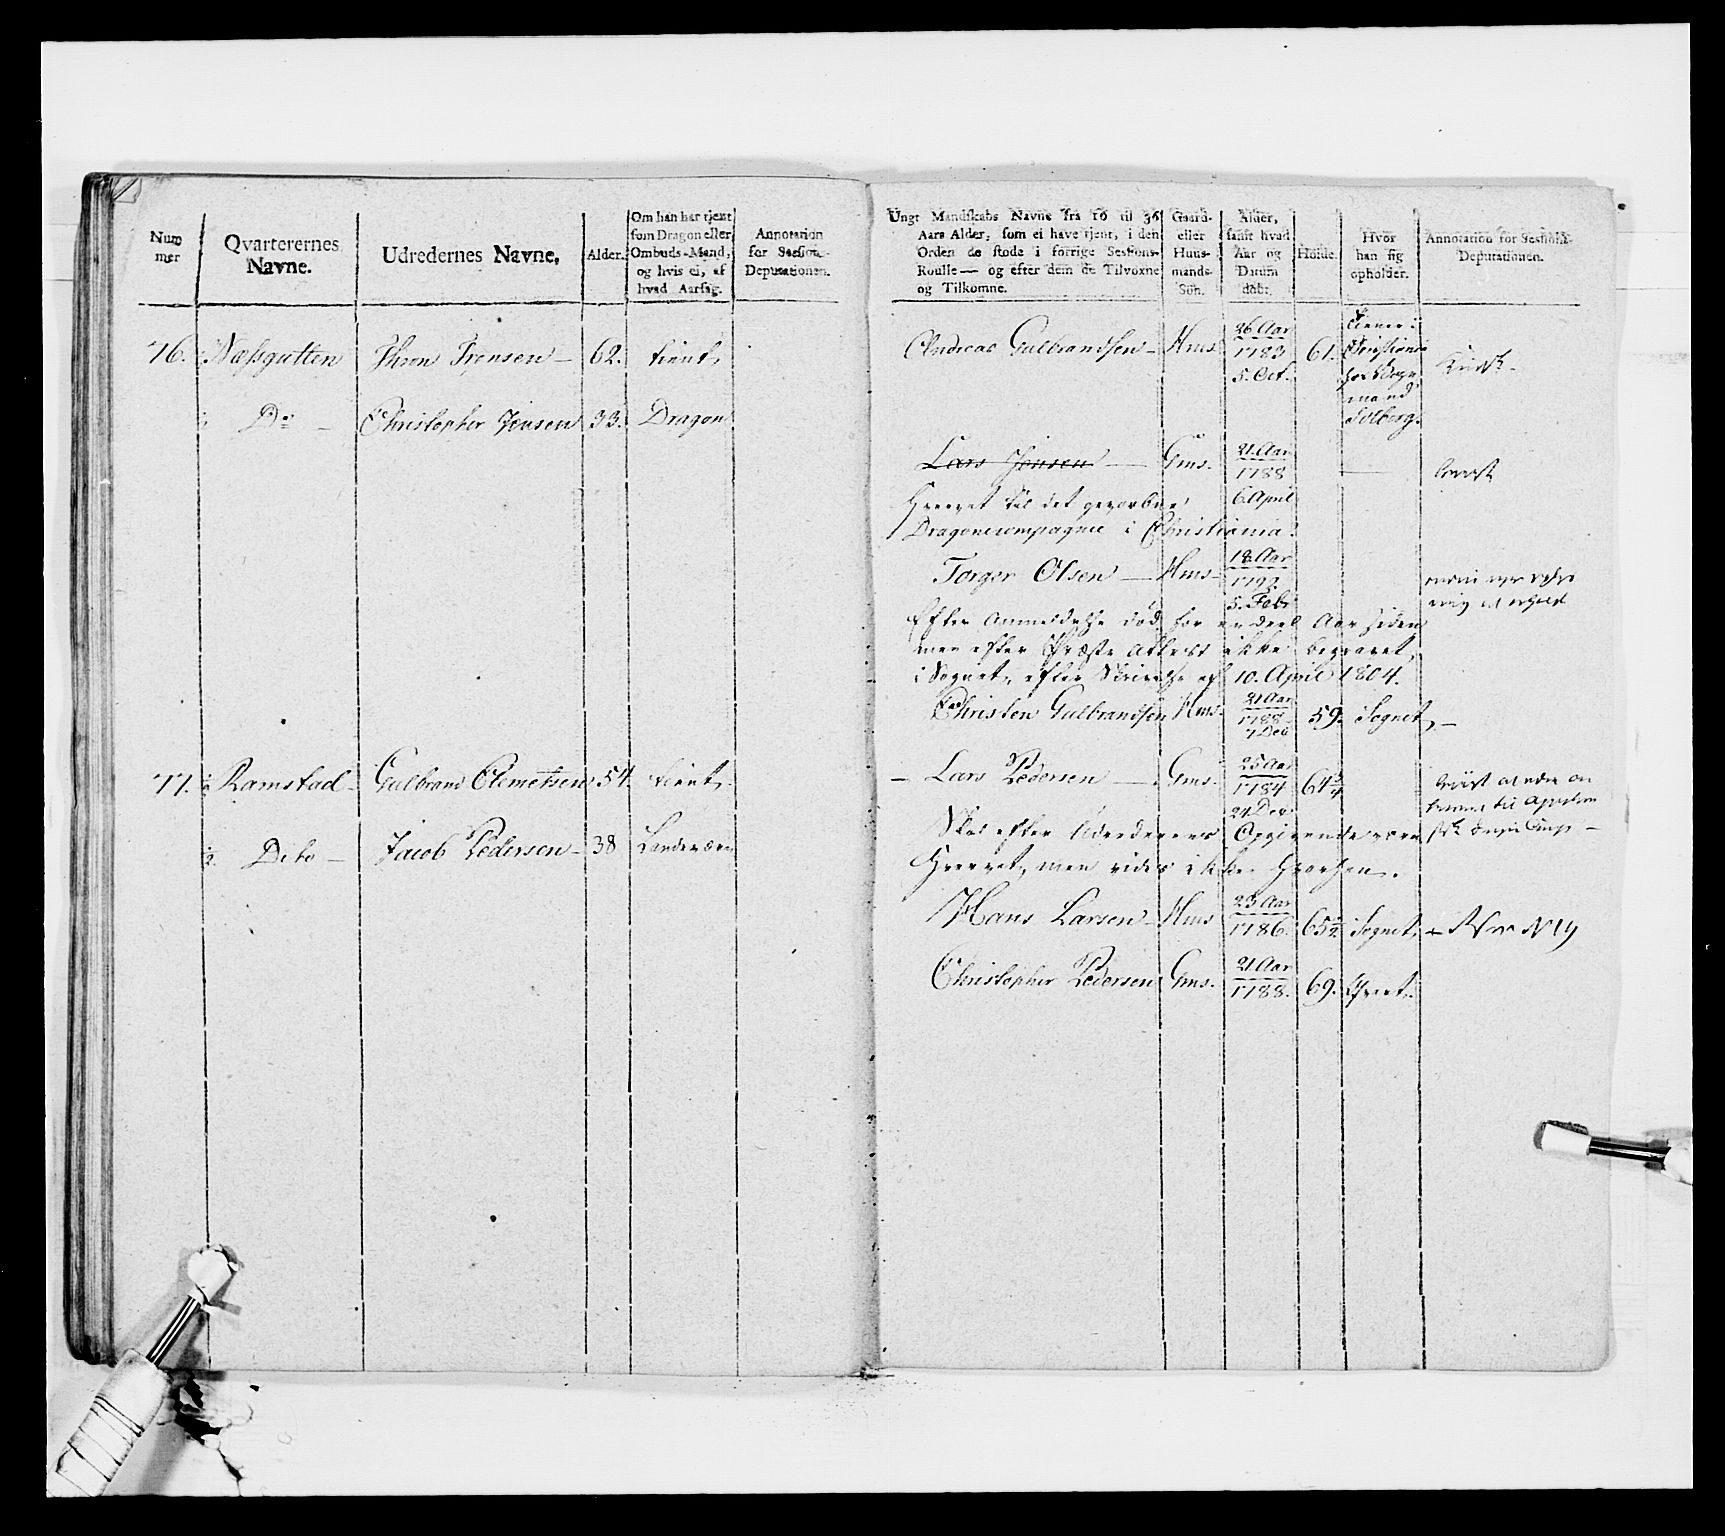 Num
mer
Qvarterernes
Navne.
Udredernes Navne,
Alder.
Om han har tjent
som Dragon eller
Ombuds-Mand,
og hvis ei, af
hvad Aarsag.
Annotation
for Sessions-
Deputationen.
76. Næssgutten Thron Trensen — 62. tient,
Do — Christopher Jensen 33. Dragon
77. Ramstad — Gulbrand Clemetsen 54. tient,
2. Dito — Jacob Pedersen — 38 Landeværn
Ungt Mandskabs Navne fra 16 til 36
Aars Alder, som ei have tjent, i den
Orden de stode i forrige Sessions-
Roulle — og efter dem de Tilvoxne
og Tilkomne.
Gaard-
eller
Huus-
mands-
Søn.
Alder,
samt hvad
Aar og
Datum
født.
Høide.
Hvor
han sig
opholder.
Annotation for Sessions-
Deputationen.
Andreas Gulbrandsen — Hms 26 Aar
1783
5. Oct.
61.
tiener i
Christiania
hos
mand
Solberg.
Lars Jensen — Gms. 21. Aar
1788
6 April
Hvervet til det gevorbne
Dragoncompagnie i Christiania.
Torger Olsen — Hms — 18. Aar
1792.
5. Febr
Efter Anmeldelse død for en deel Aar siden
men efter Præste Attest ikke begravet
i Sognet, efter Skrivelse af 10. April 1804.
Christen Gulbrandsen Hms. 21 Aar
1788
7 Dec
59. Sognet, —
— Lars Pedersen — Gms. 25 Aar
1784
24 Dec
64 3/4
Skal efter Udredernes Opgivende være
Hvervet, men vides ikke hvorhen.
Hans Larsen — Hms 23 Aar
1786.
65 1/2. Sognet,
Christopher Pedersen Gms. 21 Aar
1788.
69.